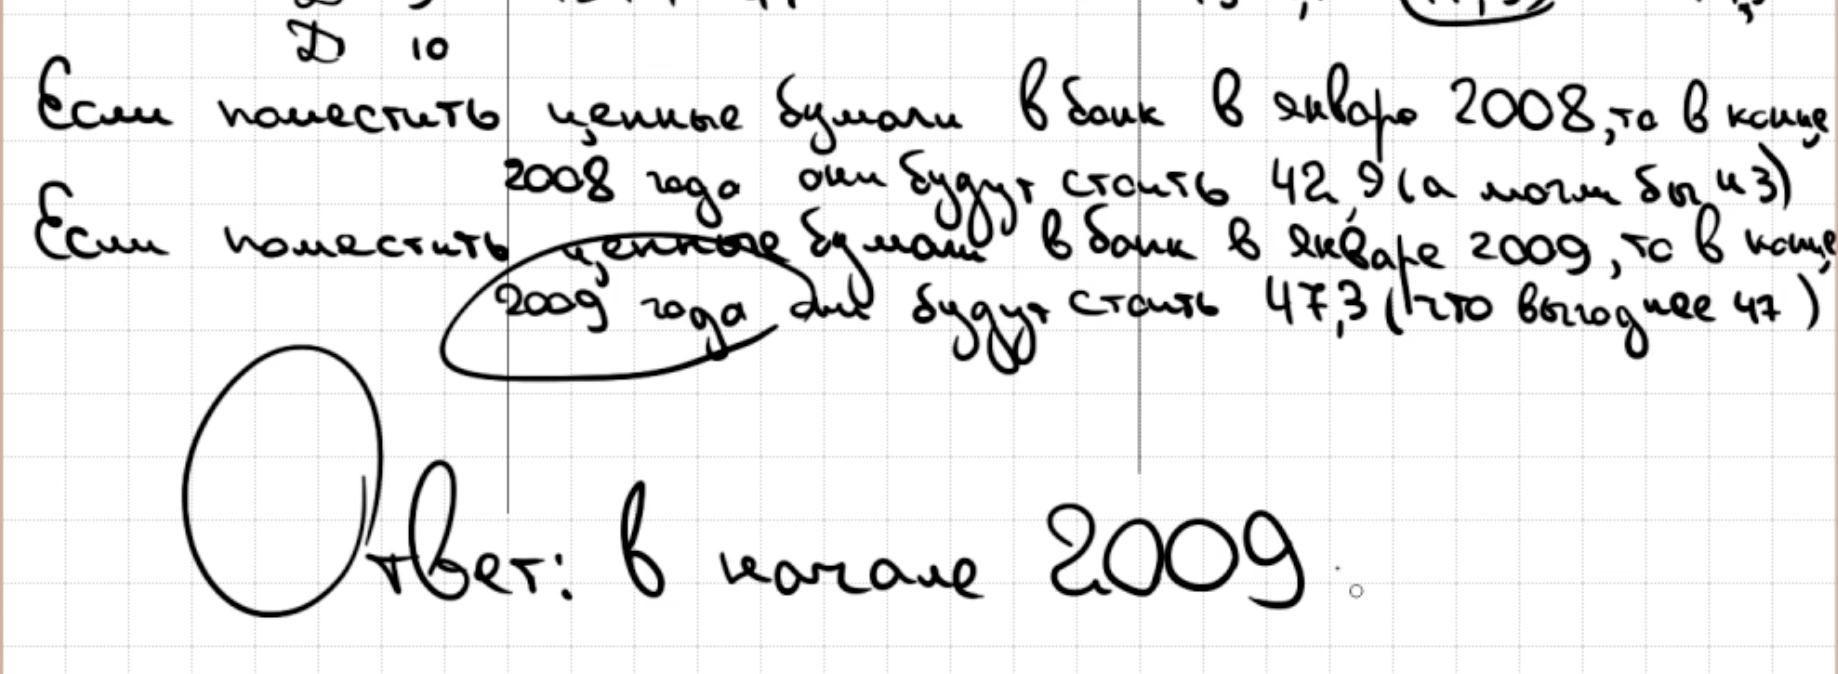 Д 10
Если поместить ценные бумаги в банк в январе 2008, то в конце
2008 года они будут стоить 42,9 (а могли бы 43)
Если поместить ценные бумаги в банк в январе 2009, то в конце
2009 года они будут стоить 47,3 (что выгоднее 47)
Ответ: в начале 2009.